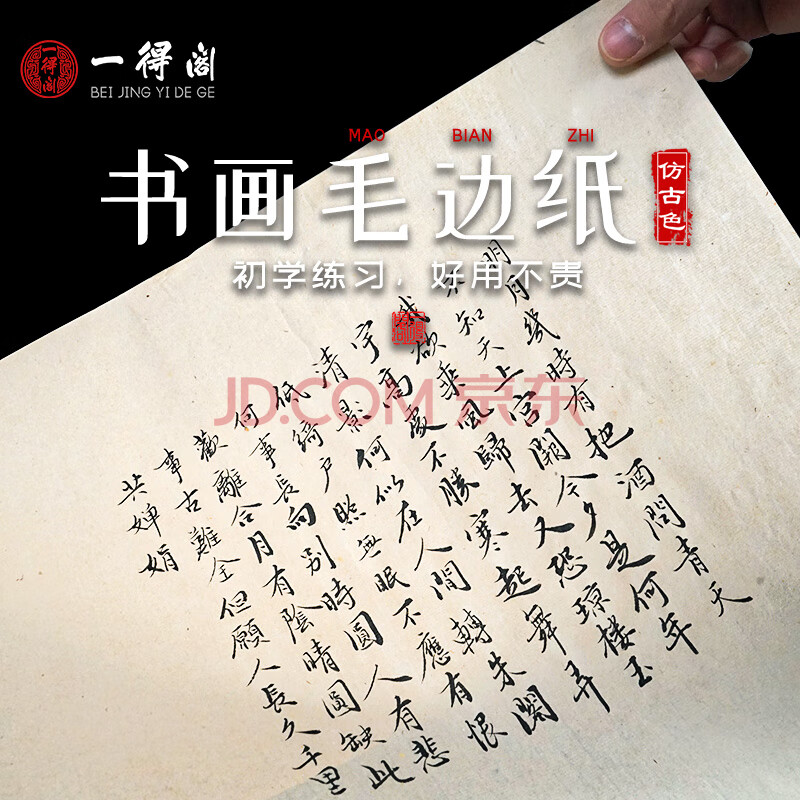 一得阁
一得阁
BEI JING YI DE GE
MAO BIAN ZHI
书画毛边纸
仿古色
初学练习,好用不贵
JD.COM 京东
明月幾時有把酒問青天
不知天上宮闕今夕是何年
我欲乘風歸去又恐琼樓玉
宇高處不勝寒起舞弄
清影何似在人間轉朱閣
低綺户照無眠不應有恨
何事長向别時圓人有悲
歡離合月有陰晴圓缺此
事古難全但願人長久千里
共嬋娟